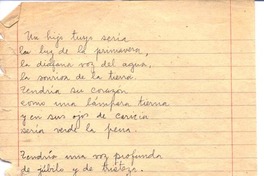 Un hijo tuyo sería
la luz de la primavera,
la diáfana voz del agua,
la sonrisa de la tierra
Tendría su corazón
como una lámpara tierna
y en sus ojos de caricia
sería verde la pena.
Tendría una voz profunda
de júbilo y de tristeza.